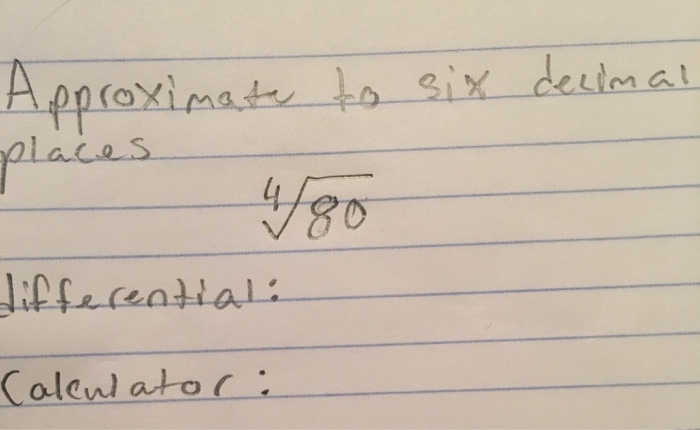 Approximate to six decimal
places
∜80
differential:
Calculator: